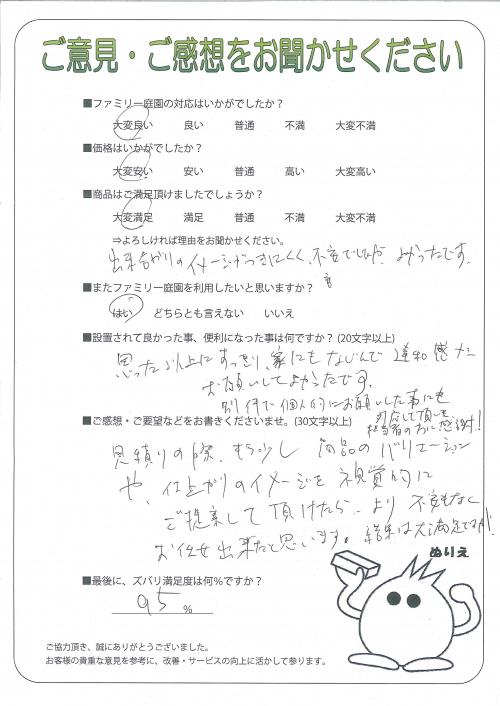 ご意見・ご感想をお聞かせください
■ファミリー庭園の対応はいかがでしたか？
大変良い 良い 普通 不満 大変不満
■価格はいかがでしたか？
大変安い 安い 普通 高い 大変高い
■商品はご満足頂けましたでしょうか？
大変満足 満足 普通 不満 大変不満
⇒よろしければ理由をお聞かせください。
出来あがりのイメージがつきにくく、不安でしたが、よかったです。
■またファミリー庭園を利用したいと思いますか？
はい どちらとも言えない いいえ
■設置されて良かった事、便利になった事は何ですか？(20文字以上)
思った以上にすっきり、家にもなじんで違和感ナシ
お願いしてよかったです。
別件で個人的にお願いした事にも
対応して頂いた
担当者の方に感謝！
■ご感想・ご要望などをお書きくださいませ。(30文字以上)
見積りの際、もう少し 商品のバリエーション
や、仕上がりのイメージを視覚的に
ご提案して頂けたら、より不安もなく
お任せ出来たと思います。結果は大満足ですが！
ぬりえ
■最後に、ズバリ満足度は何%ですか？
95%
ご協力頂き、誠にありがとうございました。
お客様の貴重な意見を参考に、改善・サービスの向上に活かして参ります。